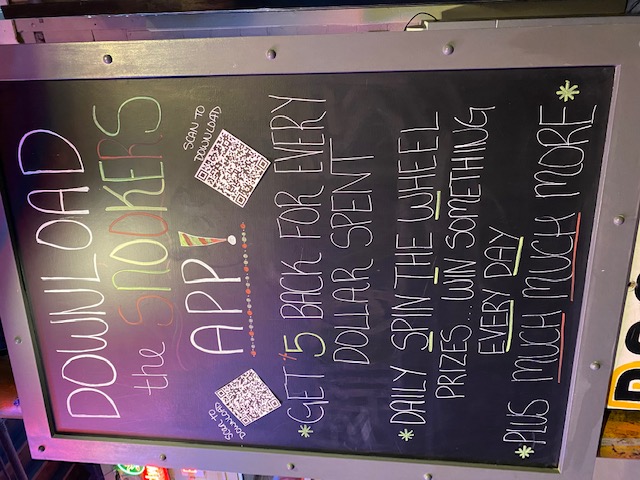 DOWNLOAD
the SNOOKERS
APP!
SCAN TO
DOWNLOAD
SCAN TO
DOWNLOAD
* GET 5 BACK FOR EVERY
DOLLAR SPENT
* DAILY SPIN THE WHEEL
PRIZES... WIN SOMETHING
EVERY DAY
* PLUS MUCH MUCH MUCH MORE *